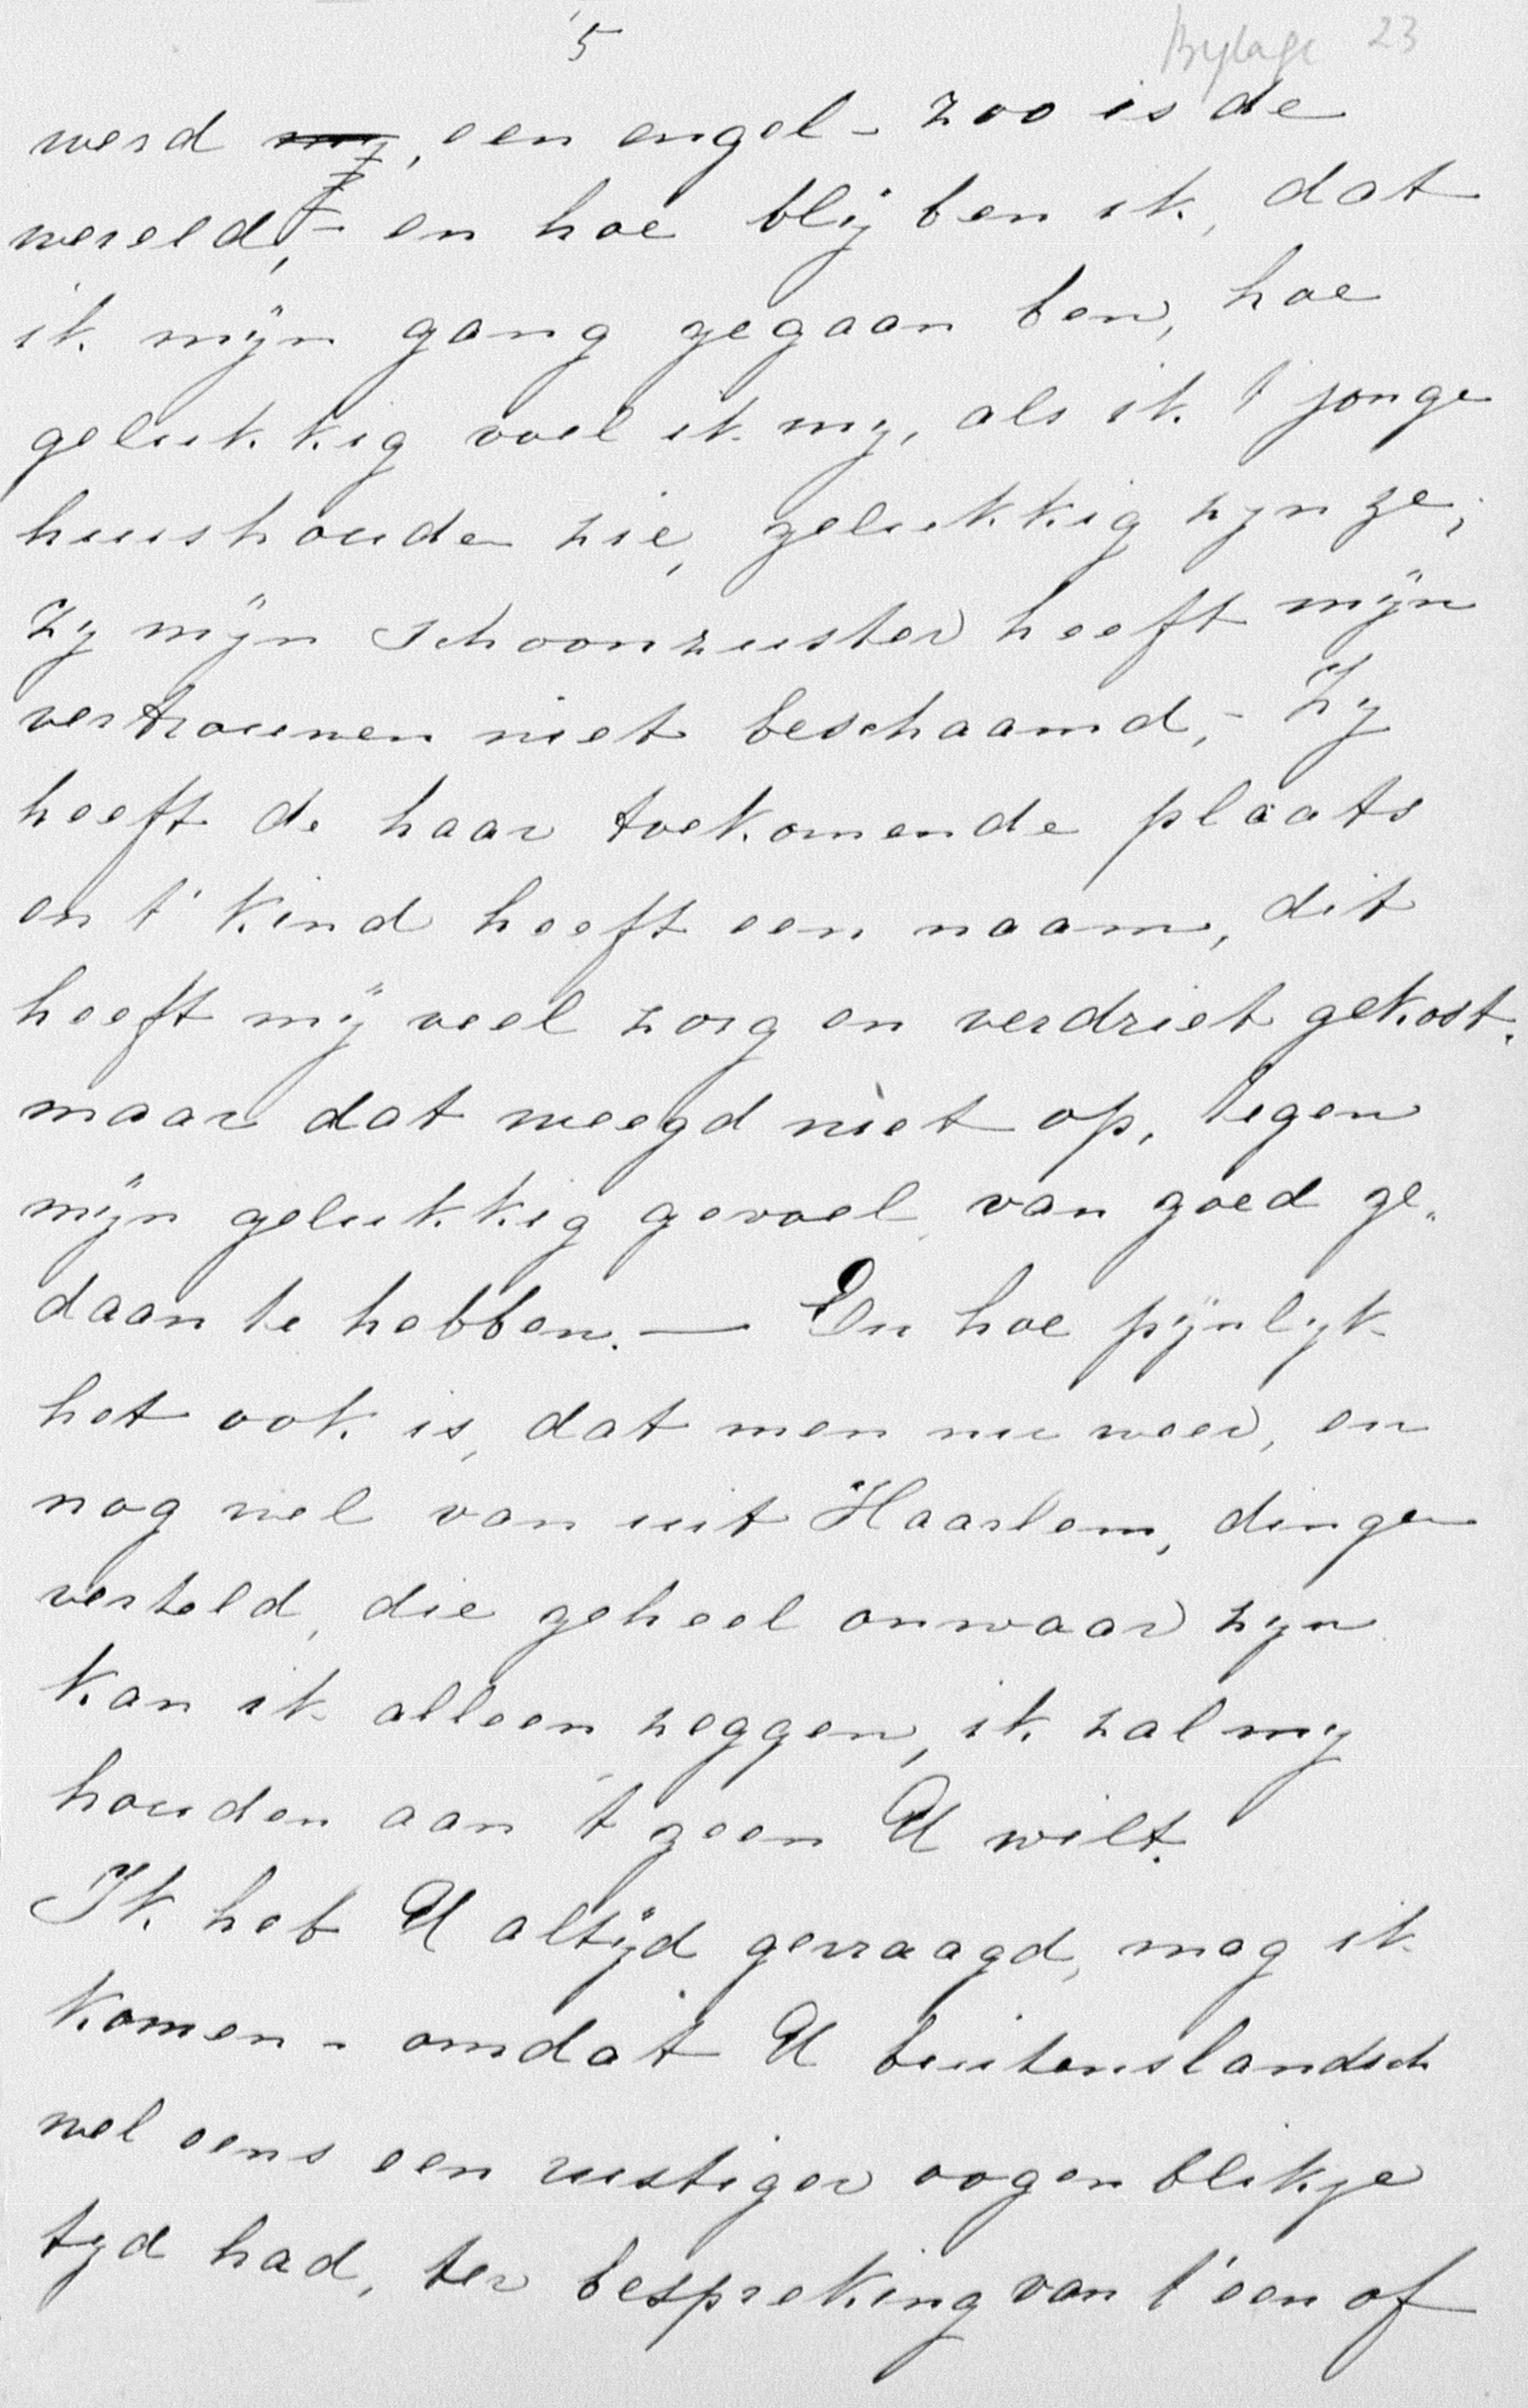 5
Bylage 23
werd een engel - zoo is de
wereld, - en hoe blij ben ik, dat
ik mijn gang gegaan ben, hoe
gelukkig voel ik my, als ik t' jonge
huishouden zie, gelukkig zyn ze,
Zy mijn schoonzuster heeft mijn
vertrouwen niet beschaamd, - Zy
heeft de haar toekomende plaats
en t' kind heeft een naam, dit
heeft mij veel zorg en verdriet gekost.
maar dat weegd niet op, tegen
mijn gelukkig gevoel, van goed ge„
daan te hebben. — En hoe pijnlyk
het ook is, dat men nu weer, en
nog wel van uit Haarlem, dingen
verteld, die geheel onwaar zyn
kan ik alleen zeggen, ik zal my
houden aan 't geen U wilt.
Ik heb U altijd gevraagd, mag ik
komen - omdat U buitenslandsch
wel eens een rustiger oogenblikje
tyd had, ter bespreking van t' een of